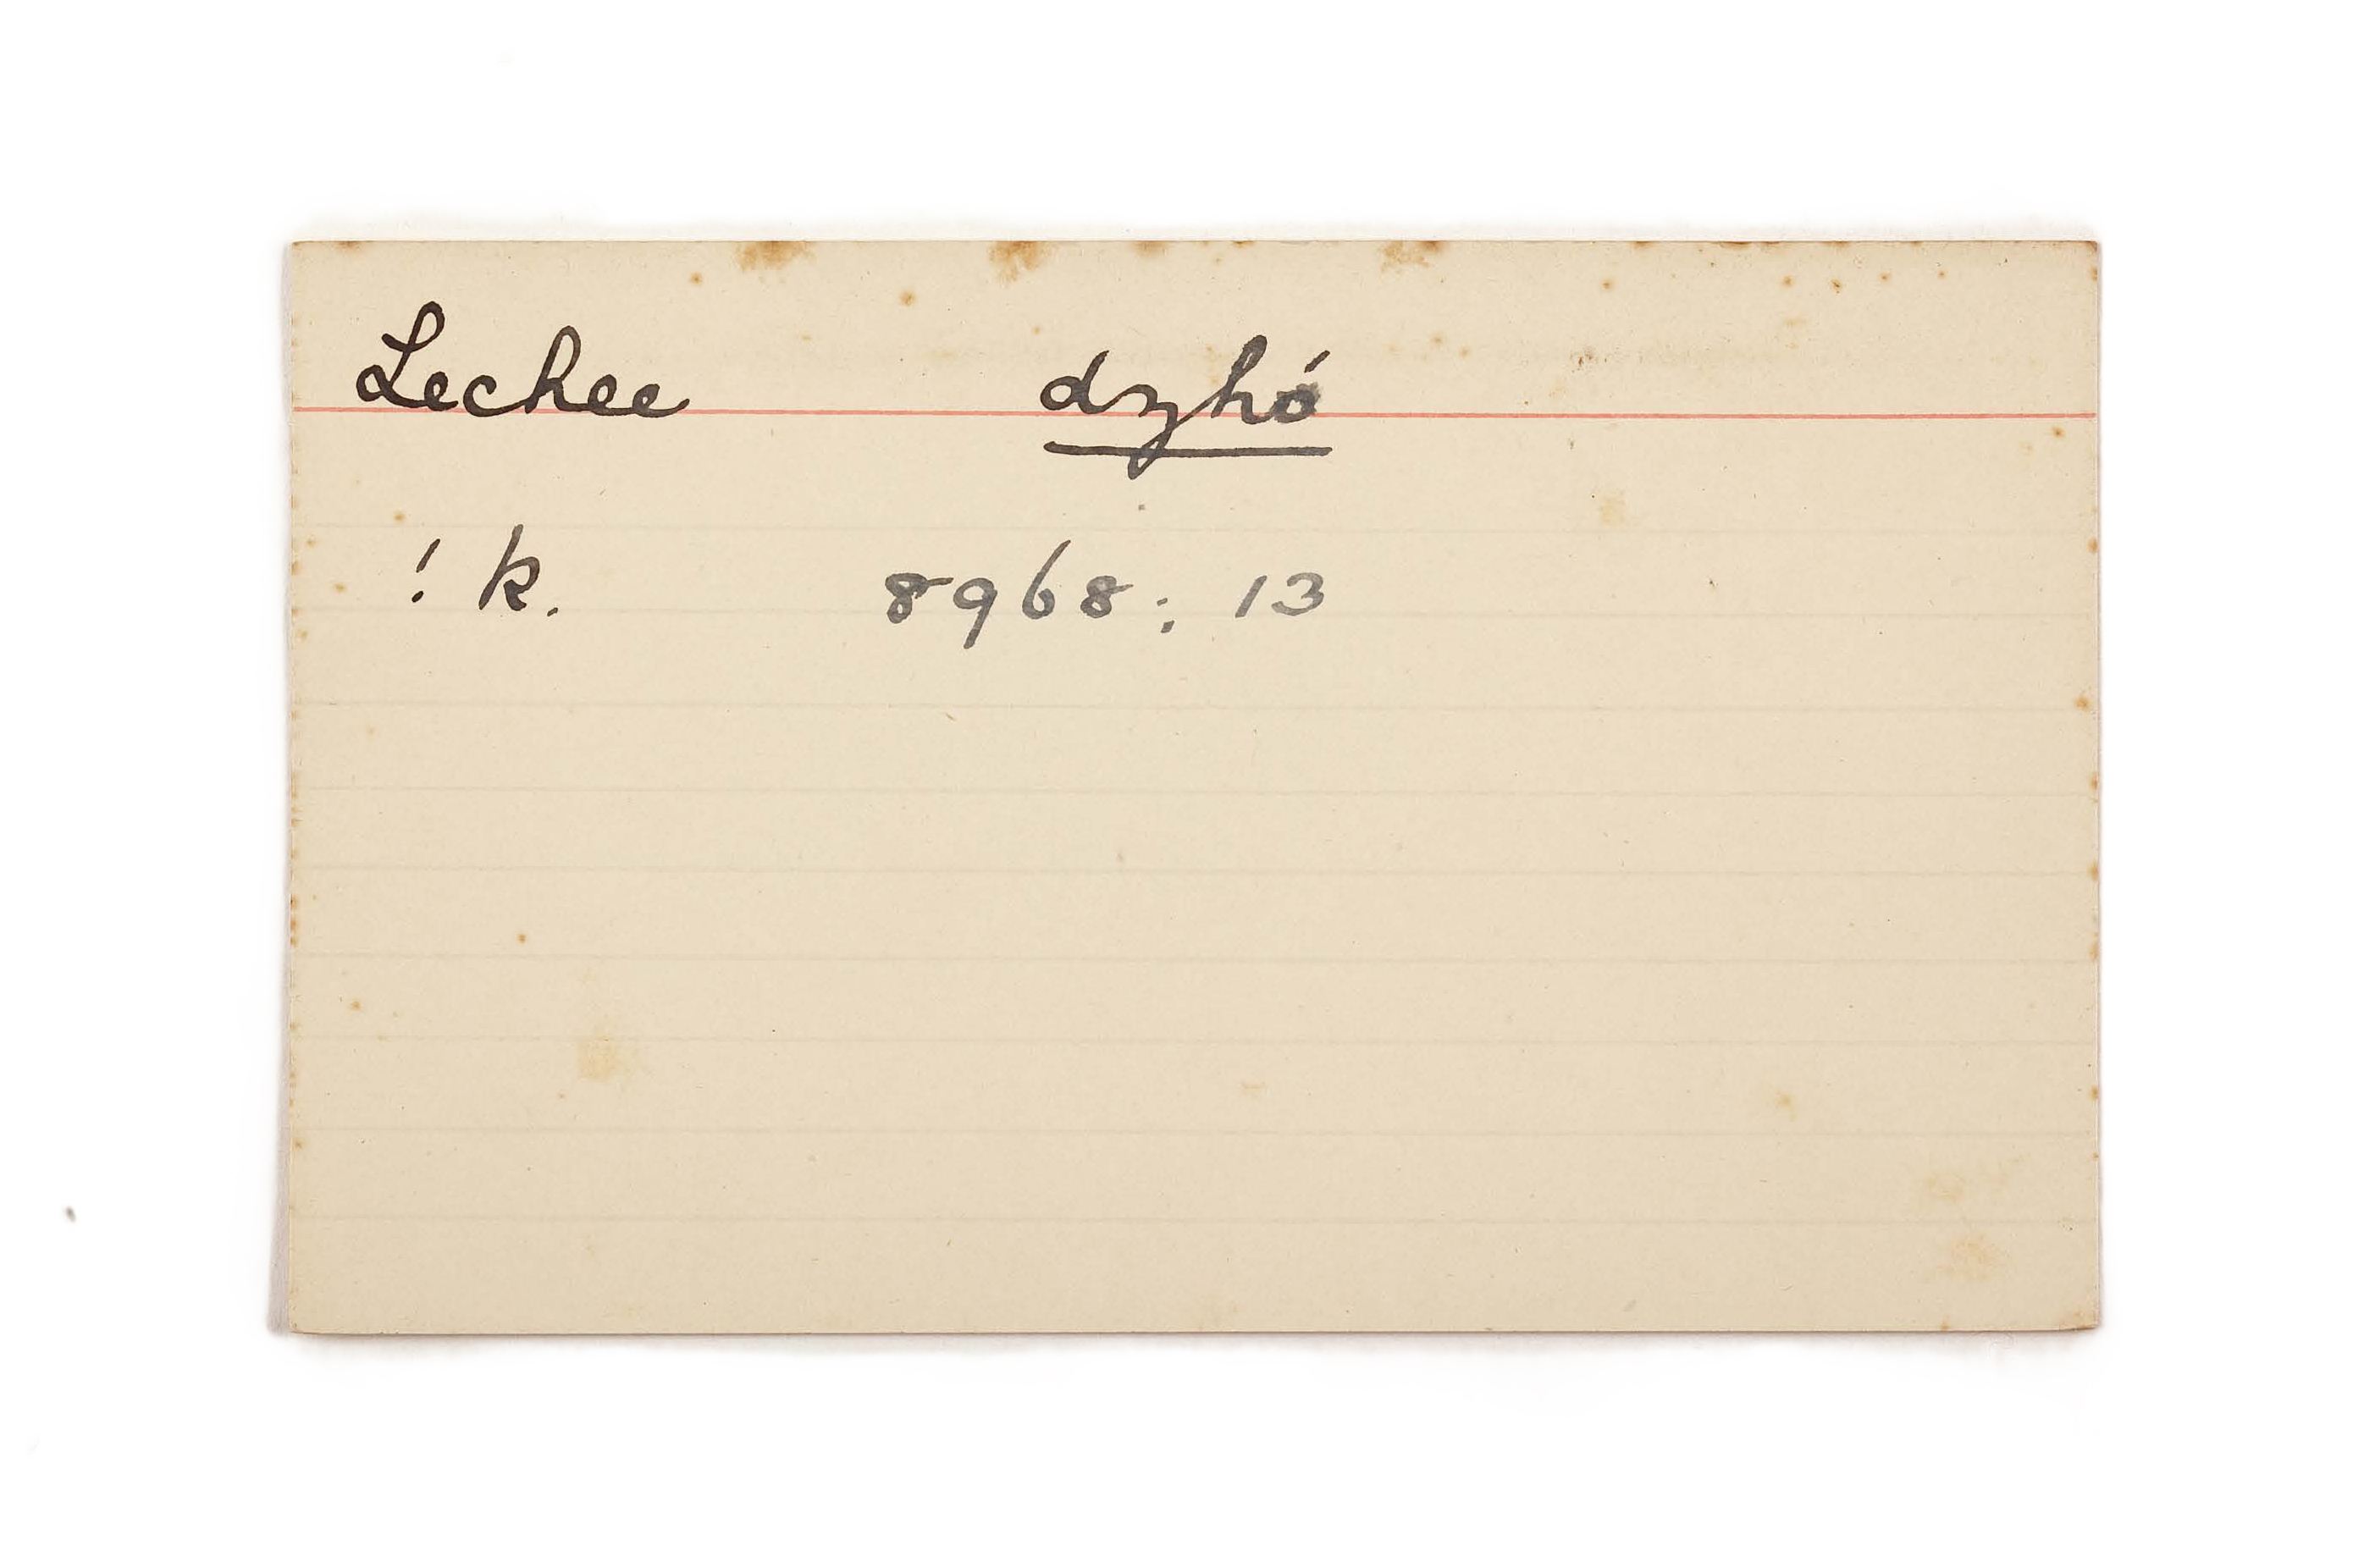 Lechee dzhó
! k. 8968: 13